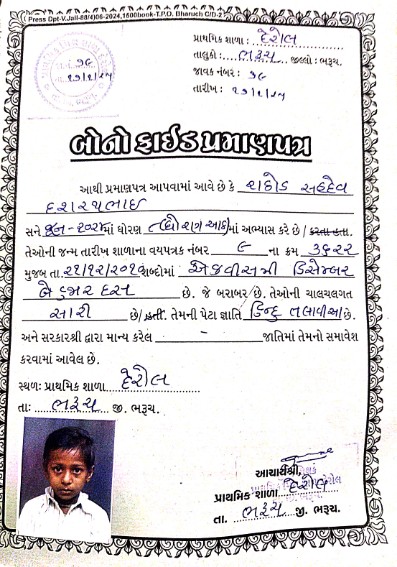 Press Dpt-V.Jali-88(4)06-2024,1500book-T.P.O. Bharuch C/D-2
પ્રાથમિક શાળા : દેરોલ
તાલુકો : ભરૂચ જીલ્લો : ભરૂચ.
જાવક નંબર : ૭૯
તારીખ :
બોનોફાઈડ પ્રમાણપત્ર
આથી પ્રમાણપત્ર આપવામાં આવે છે કે રાઠોડ સહદેવ
દશરથભાઈ
સને માં ધોરણ માં અભ્યાસ કરે છે / કરતા હતા.
તેઓની જન્મ તારીખ શાળાના વયપત્રક નંબર ૯ ના ક્રમ ૩૬૨૨
મુજબ તા. ૨૧/૧૨/૨૦૧૦ શબ્દોમાં એકવીસમી ડિસેમ્બર
બે હજાર દસ છે. જે બરાબર છે. તેઓની ચાલચલગત
સારી છે/હતી. તેમની પેટા જ્ઞાતિ હિન્દુ તલાવીઆ છે.
અને સરકારશ્રી દ્વારા માન્ય કરેલ - જાતિમાં તેમનો સમાવેશ
કરવામાં આવેલ છે.
સ્થળ: પ્રાથમિક શાળા દેરોલ
તા: ભરૂચ જી. ભરૂચ.
આચાર્યશ્રી,
પ્રાથમિક શાળા દેરોલ
તા. ભરૂચ જી. ભરૂચ.